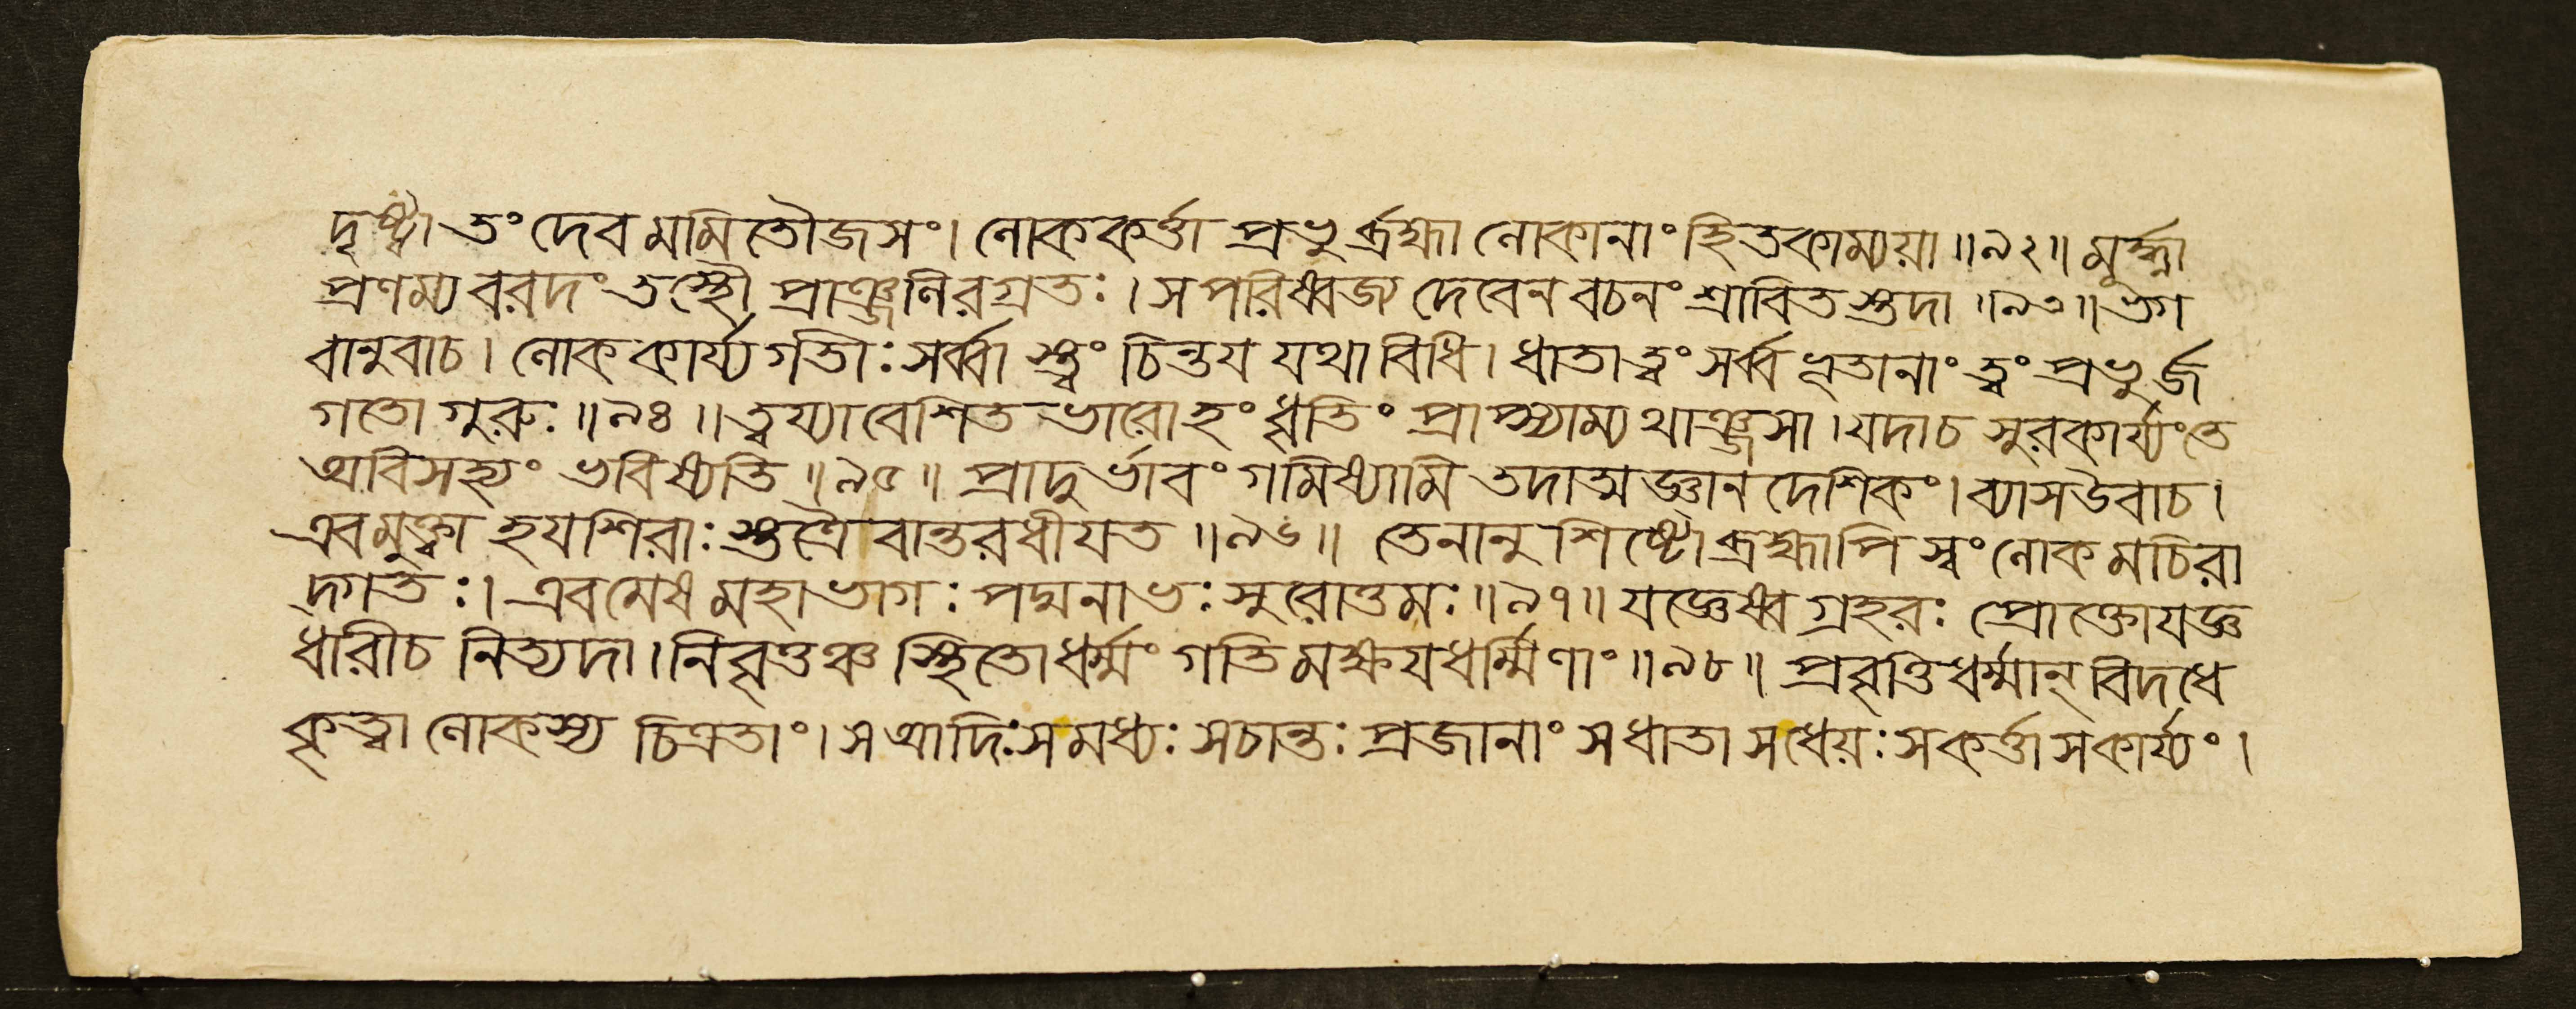 দৃষ্ট্বা তং দেবমমিতৌজসং। লোককর্ত্তা প্রভুর্ব্রহ্মা লোকানাং হিতকাম্যয়া॥৯২॥ মূর্দ্ধ্না
প্রণম্য বরদং তস্থৌ প্রাঞ্জলিরগ্রতঃ। স পরিষ্বজ্য দেবেন বচনং শ্রাবিতস্তদা॥৯৩॥ ভগ
বানুবাচ। লোককার্য্যগতীঃ সর্ব্বাস্ত্বং চিন্তয যথাবিধি। ধাতা ত্বং সর্ব্বভূতানাং ত্বং প্রভুর্জ
গতো গুরুঃ॥৯৪॥ ত্বয্যাবেশিতভারোহং ধৃতিং প্রাপ্স্যাম্যথাঞ্জসা। যদাচ সুরকার্য্যং তে
অবিসহ্যং ভবিষ্যতি॥৯৫॥ প্রাদুর্ভাবং গমিষ্যামি তদাত্মজ্ঞানদেশিকং। ব্যাসউবাচ।
এবমুক্ত্বা হযশিরাঃ স্তত্রৈবান্তরধীযত॥৯৬॥ তেনানুশিষ্টো ব্রহ্মাপি স্বং লোকমচিরা
দ্গতঃ। এবমেষ মহাভাগঃ পদ্মনাভঃ সুরোত্তমঃ॥৯৭॥ যজ্ঞেষ্বগ্রহরঃ প্রোক্তো যজ্ঞ
ধারীচ নিত্যদা। নিবৃত্তঞ্চ স্থিতো ধর্ম্মং গতিমক্ষযধর্ম্মিণাং॥৯৮॥ প্রবৃত্তিধর্ম্মান্ বিদধে
কৃত্বা লোকস্য চিত্রতাং। স আদিঃ স মধ্যঃ স চান্তঃ প্রজানাং স ধাতা স ধেয়ঃ স কর্ত্তা স কার্য্যং।